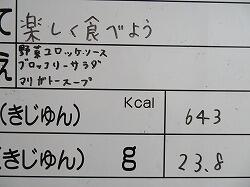 て 楽しく食べよう
え 野菜コロッケソース
ブロッコリーサラダ
マリガトースープ
Kcal
(きじゅん) 643
(きじゅん) g 23.8